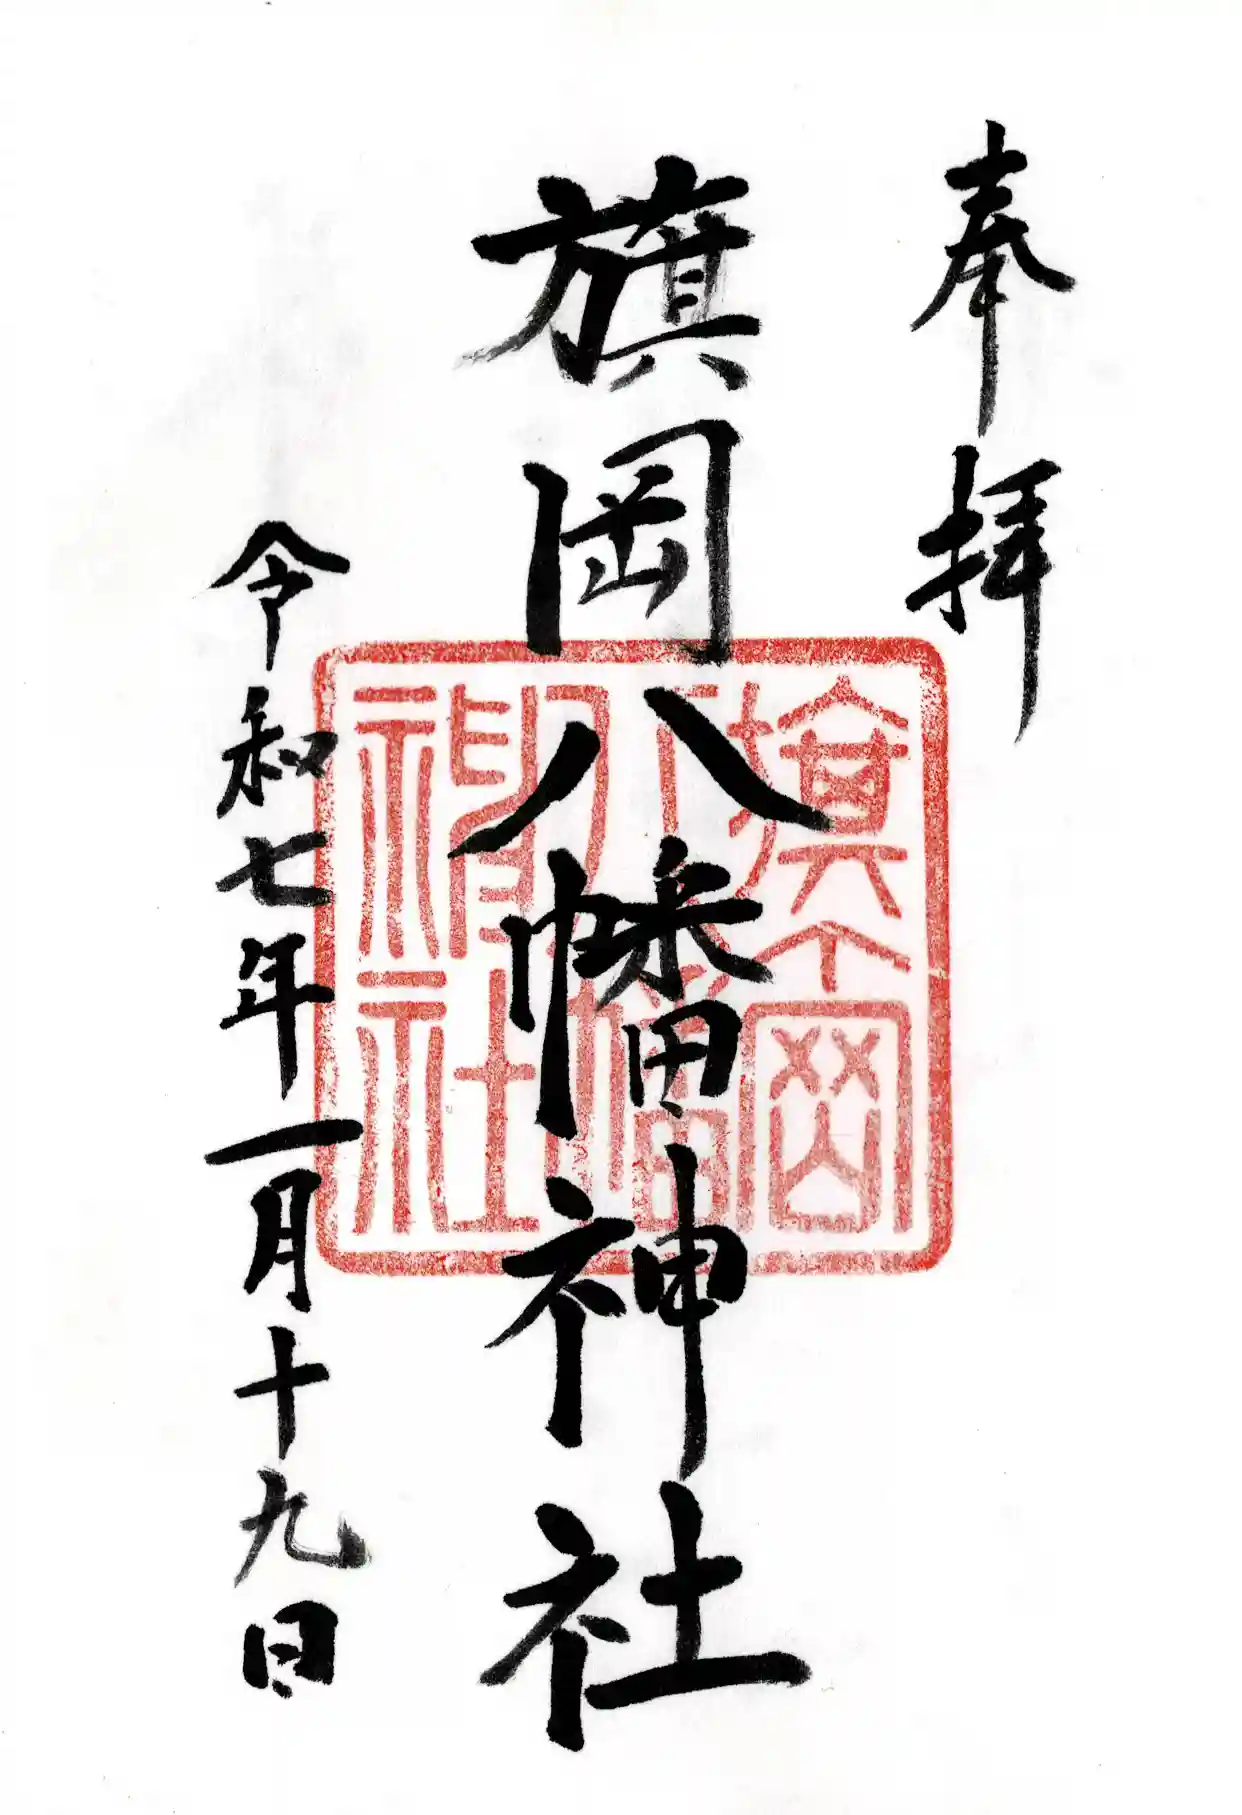 奉拝
旗岡八幡神社
令和七年一月十九日
旗岡
八幡
神社